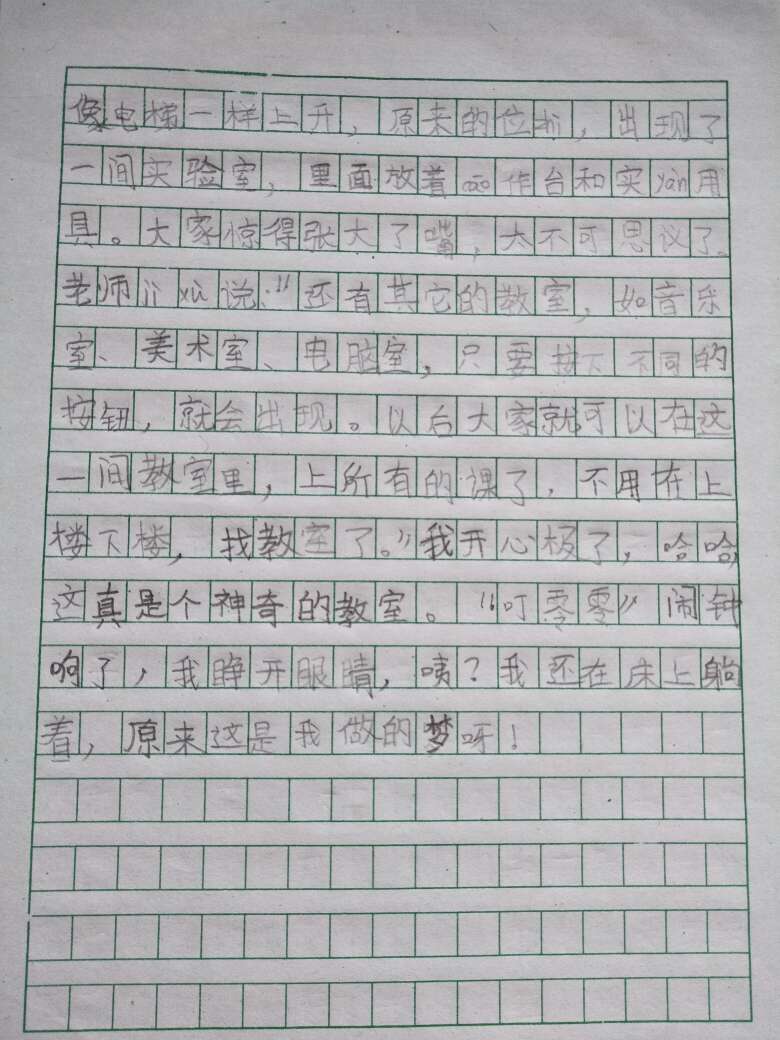 像电梯一样上升，原来的位，出现了
一间实验室，里面放着cāo作台和实yàn用
具。大家惊得张大了嘴，太不可思议了。
老师jì xù说：“还有其它的教室，如音乐
室、美术室、电脑室，只要按下不同的
按钮，就会出现。以后大家就可以在这
一间教室里，上所有的课了，不用在上
楼下楼，找教室了。”我开心极了，哈哈，
这真是个神奇的教室。“叮零零”闹钟
响了，我睁开眼睛，咦？我还在床上躺
着，原来这是我做的梦呀！